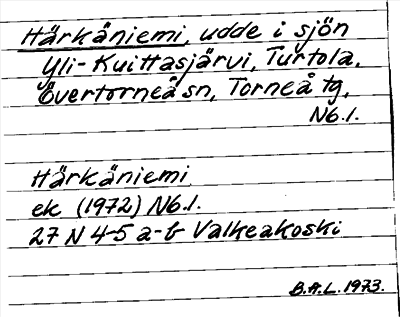 Härkäniemi, udde i sjön
Yli-Kuittasjärvi, Turtola,
Övertorneå sn, Torneå tg,
Nb.l.
Härkäniemi
ek (1972) Nb.l.
27 N 4-5 a-b Valkeakoski
B.A.L. 1973.